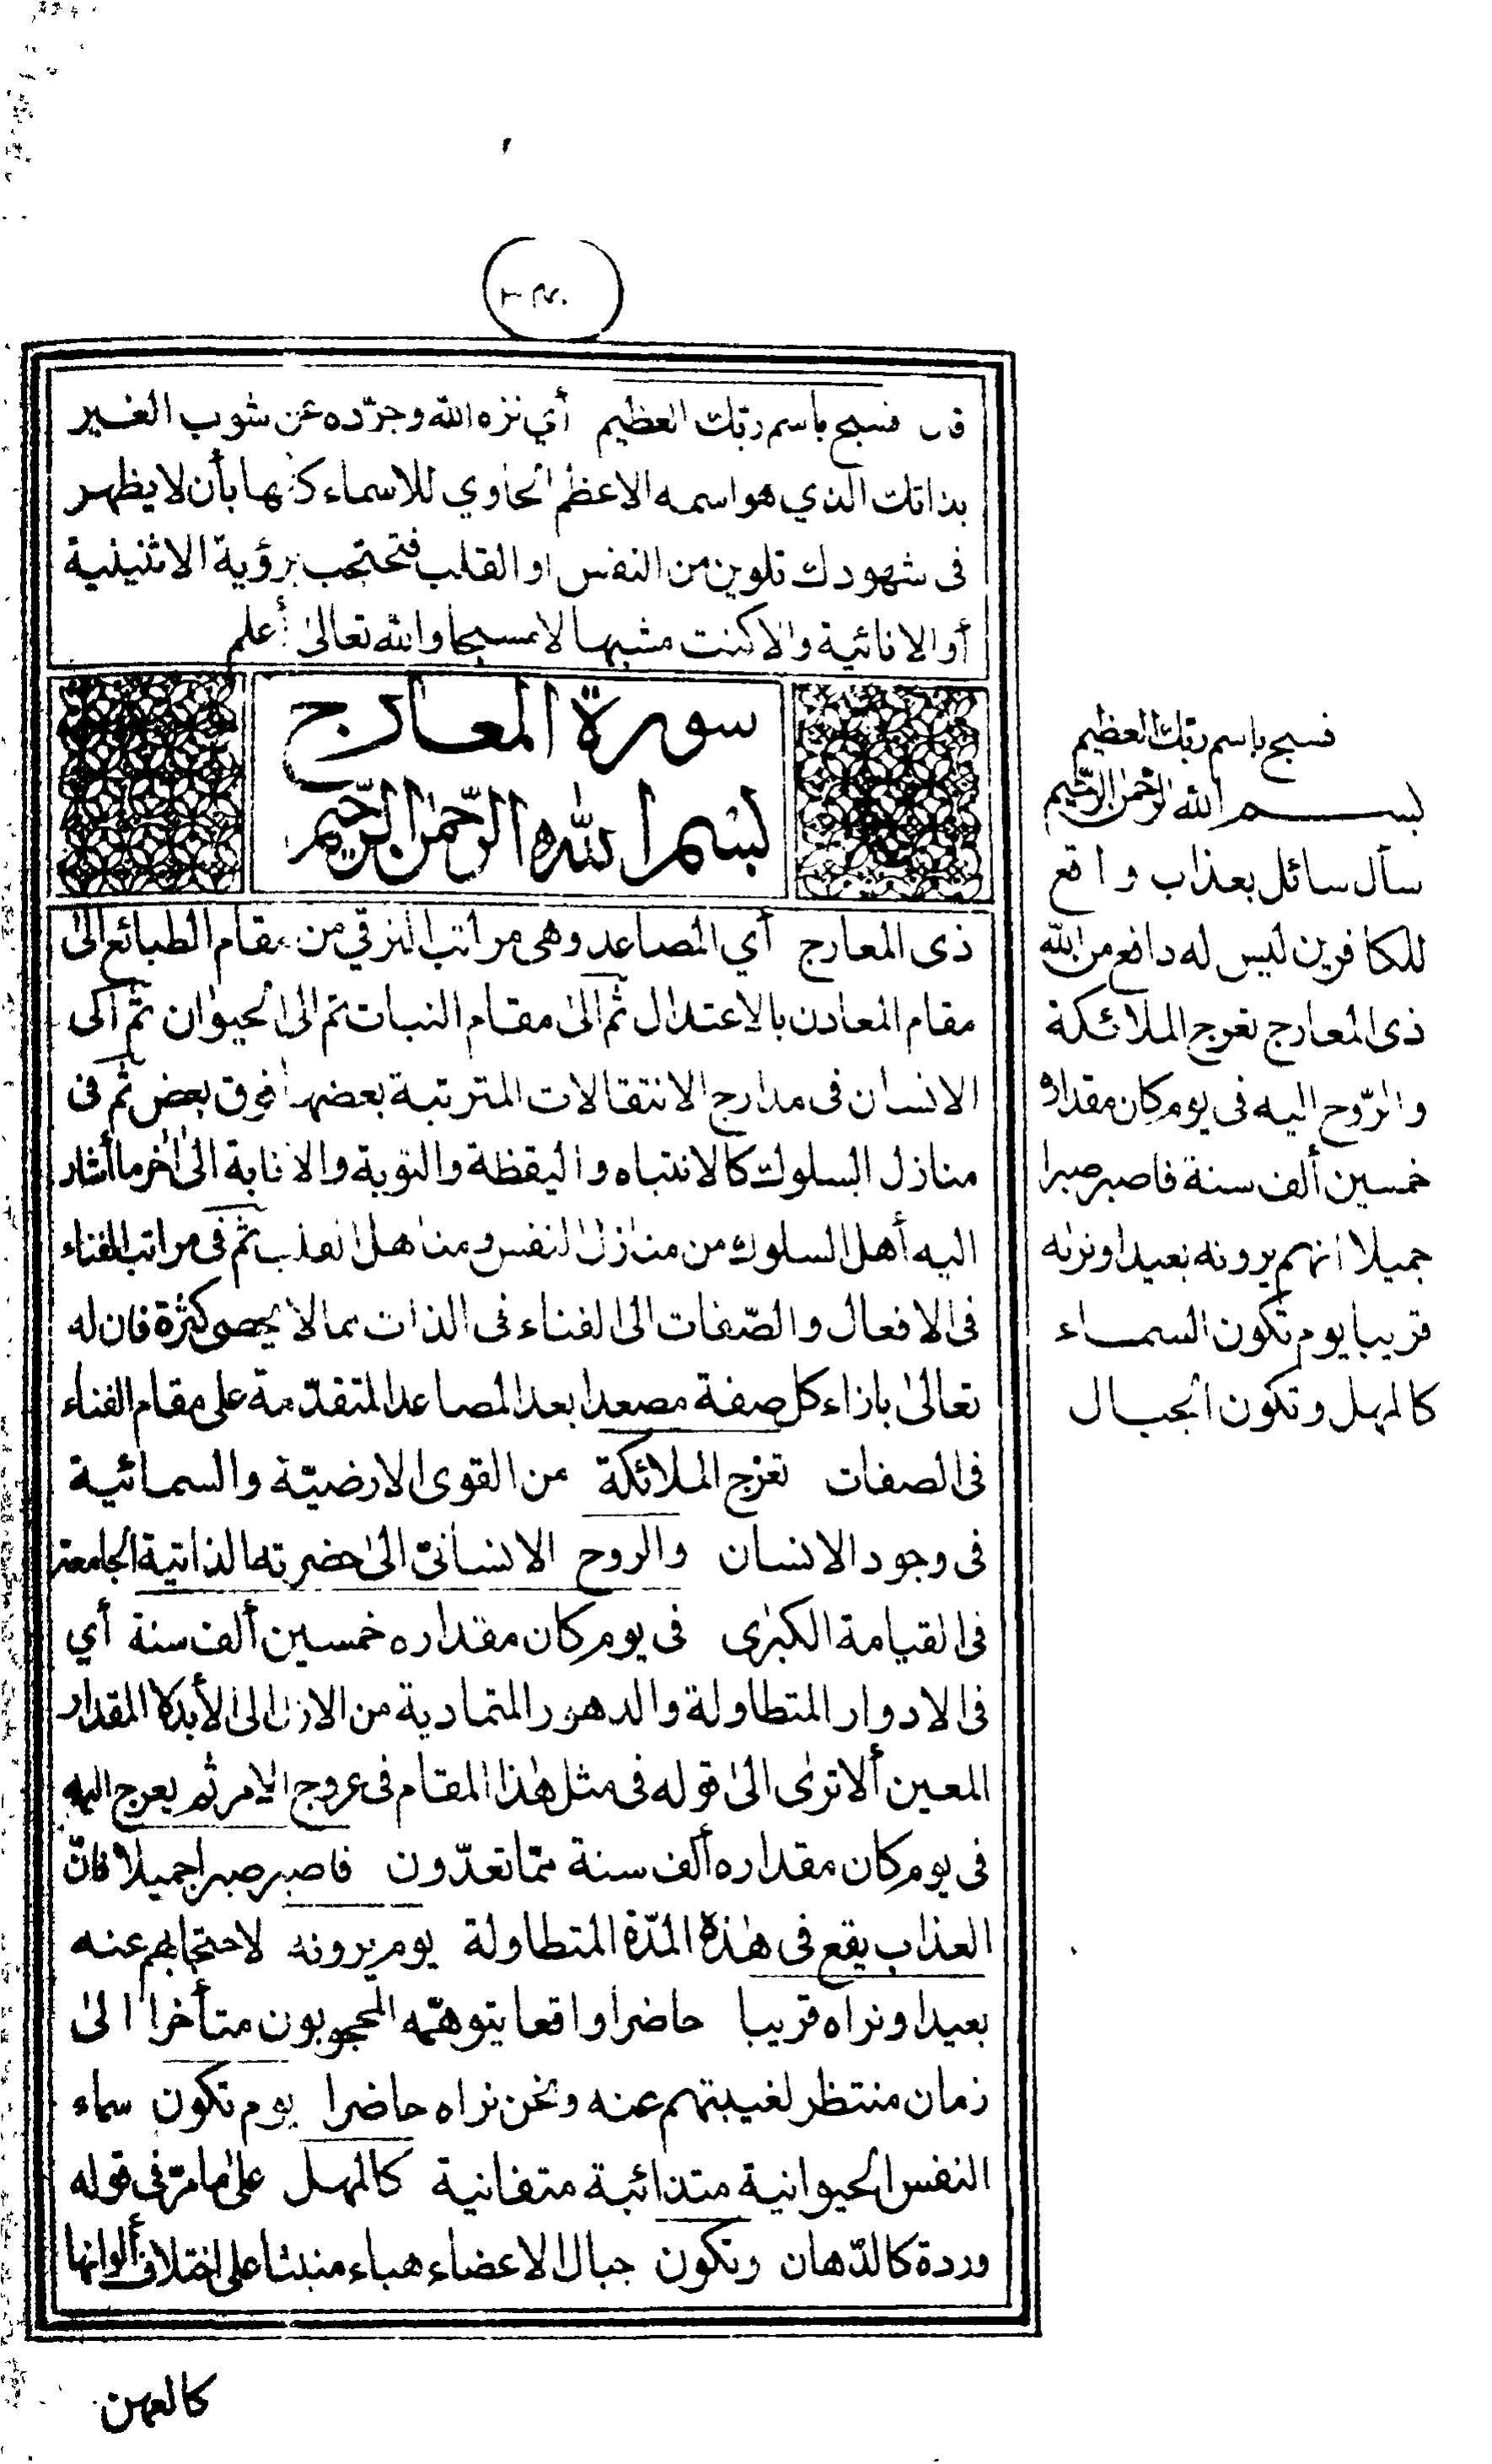 فسبح باسم ربك العظيم أي نزه الله وجرّده عن شوب الغير
بذاتك الذي هو اسمه الاعظم الحاوي للاسماء كلها بأن لا يظهر
فى شهودك تلوين من النفس او القلب فتحتجب برؤية الاثنينية
أو الانائية والا كنت مشبها لا مسبحا والله تعالى أعلم
سورة المعارج
بسم الله الرّحمٰن الرّحيم
ذى المعارج أي المصاعد وهى مراتب الترقي من مقام الطبائع الىٰ
مقام المعادن بالاعتدال ثم الىٰ مقام النبات ثم الى الحيوان ثم الى
الانسان فى مدارج الانتقالات المترتبة بعضها فوق بعض ثم فى
منازل السلوك كالانتباه واليقظة والتوبة والانابة الىٰ أخر ما أشار
اليه أهل السلوك من منازل النفس ومناهل القلب ثم فى مراتب الفناء
فى الافعال والصّفات الى الفناء فى الذات مما لا يحصى كثرة فان له
تعالىٰ بازاء كل صفة مصعدا بعد المصاعد المتقدّمة على مقام الفناء
فى الصفات تعرج الملائكة من القوى الارضيّة والسمائية
فى وجود الانسان والروح الانسانىّ الىٰ حضرته الذاتية الجامعة
فى القيامة الكبرٰى فى يوم كان مقداره خمسين ألف سنة أي
فى الادوار المتطاولة والدهور المتمادية من الازل الى الأبد لا المقدار
المعين ألا ترىٰ الىٰ قوله فى مثل هٰذا المقام فى عروج الامر ثم يعرج اليه
فى يوم كان مقداره ألف سنة ممّا تعدّون فاصبر صبرا جميلا فانّ
العذاب يقع فى هٰذه المدّة المتطاولة يوم يرونه لاحتجابهم عنه
بعيدا ونراه قريبا حاضرا واقعا يتوهّمه المحجوبون متأخرا الىٰ
زمان منتظر لغيبتهم عنه ونحن نراه حاضرا يوم تكون سماء
النفس الحيوانية متذائبة متفانية كالمهل علىٰ ما مرّ فى قوله
وردة كالدّهان وتكون جبال الاعضاء هباء منبثا على اختلاف ألوانها
كالعهن
فسبح باسم ربك العظيم
بسم الله الرّحمٰن الرّحيم
سأل سائل بعذاب واقع
للكافرين ليس له دافع من الله
ذى المعارج تعرج الملائكة
والرّوح اليه فى يوم كان مقداره
خمسين ألف سنة فاصبر صبرا
جميلا انهم يرونه بعيدا ونرٰىه
قريبا يوم تكون السماء
كالمهل وتكون الجبال